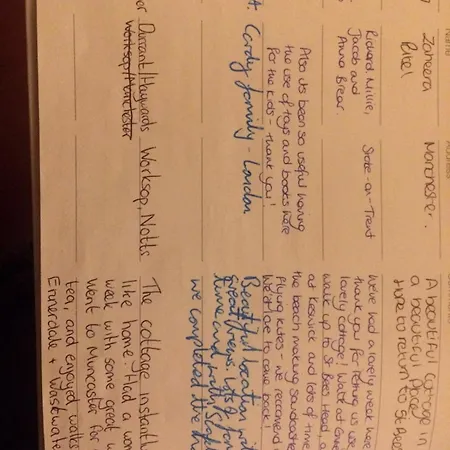 Zaheera
Patel
Manchester.
A beautiful cottage in
a beautiful place
to return to St Bees
Richard, Millie,
Jacob and
Anna Brear.
Stoke-on-Trent
We've had a lovely week here
thank you for letting us use
lovely cottage!
walk up to St Bees Head, a
at Keswick and lots of time
the beach making sandcastles
flying kites - we recommend
We'd love to come back!
Also its been so useful having
the use of toys and books here
for the kids - thank you!
Cordy family - London
Beautiful location with
great views, lots of fam
time and
we completed the
Durrant/Haywards
Worksop, Notts
Worksop/Manchester
The cottage instantly
like home. Had a won
week with some great w
Went to Muncaster for
tea, and enjoyed walks
Ennerdale + Wastwater